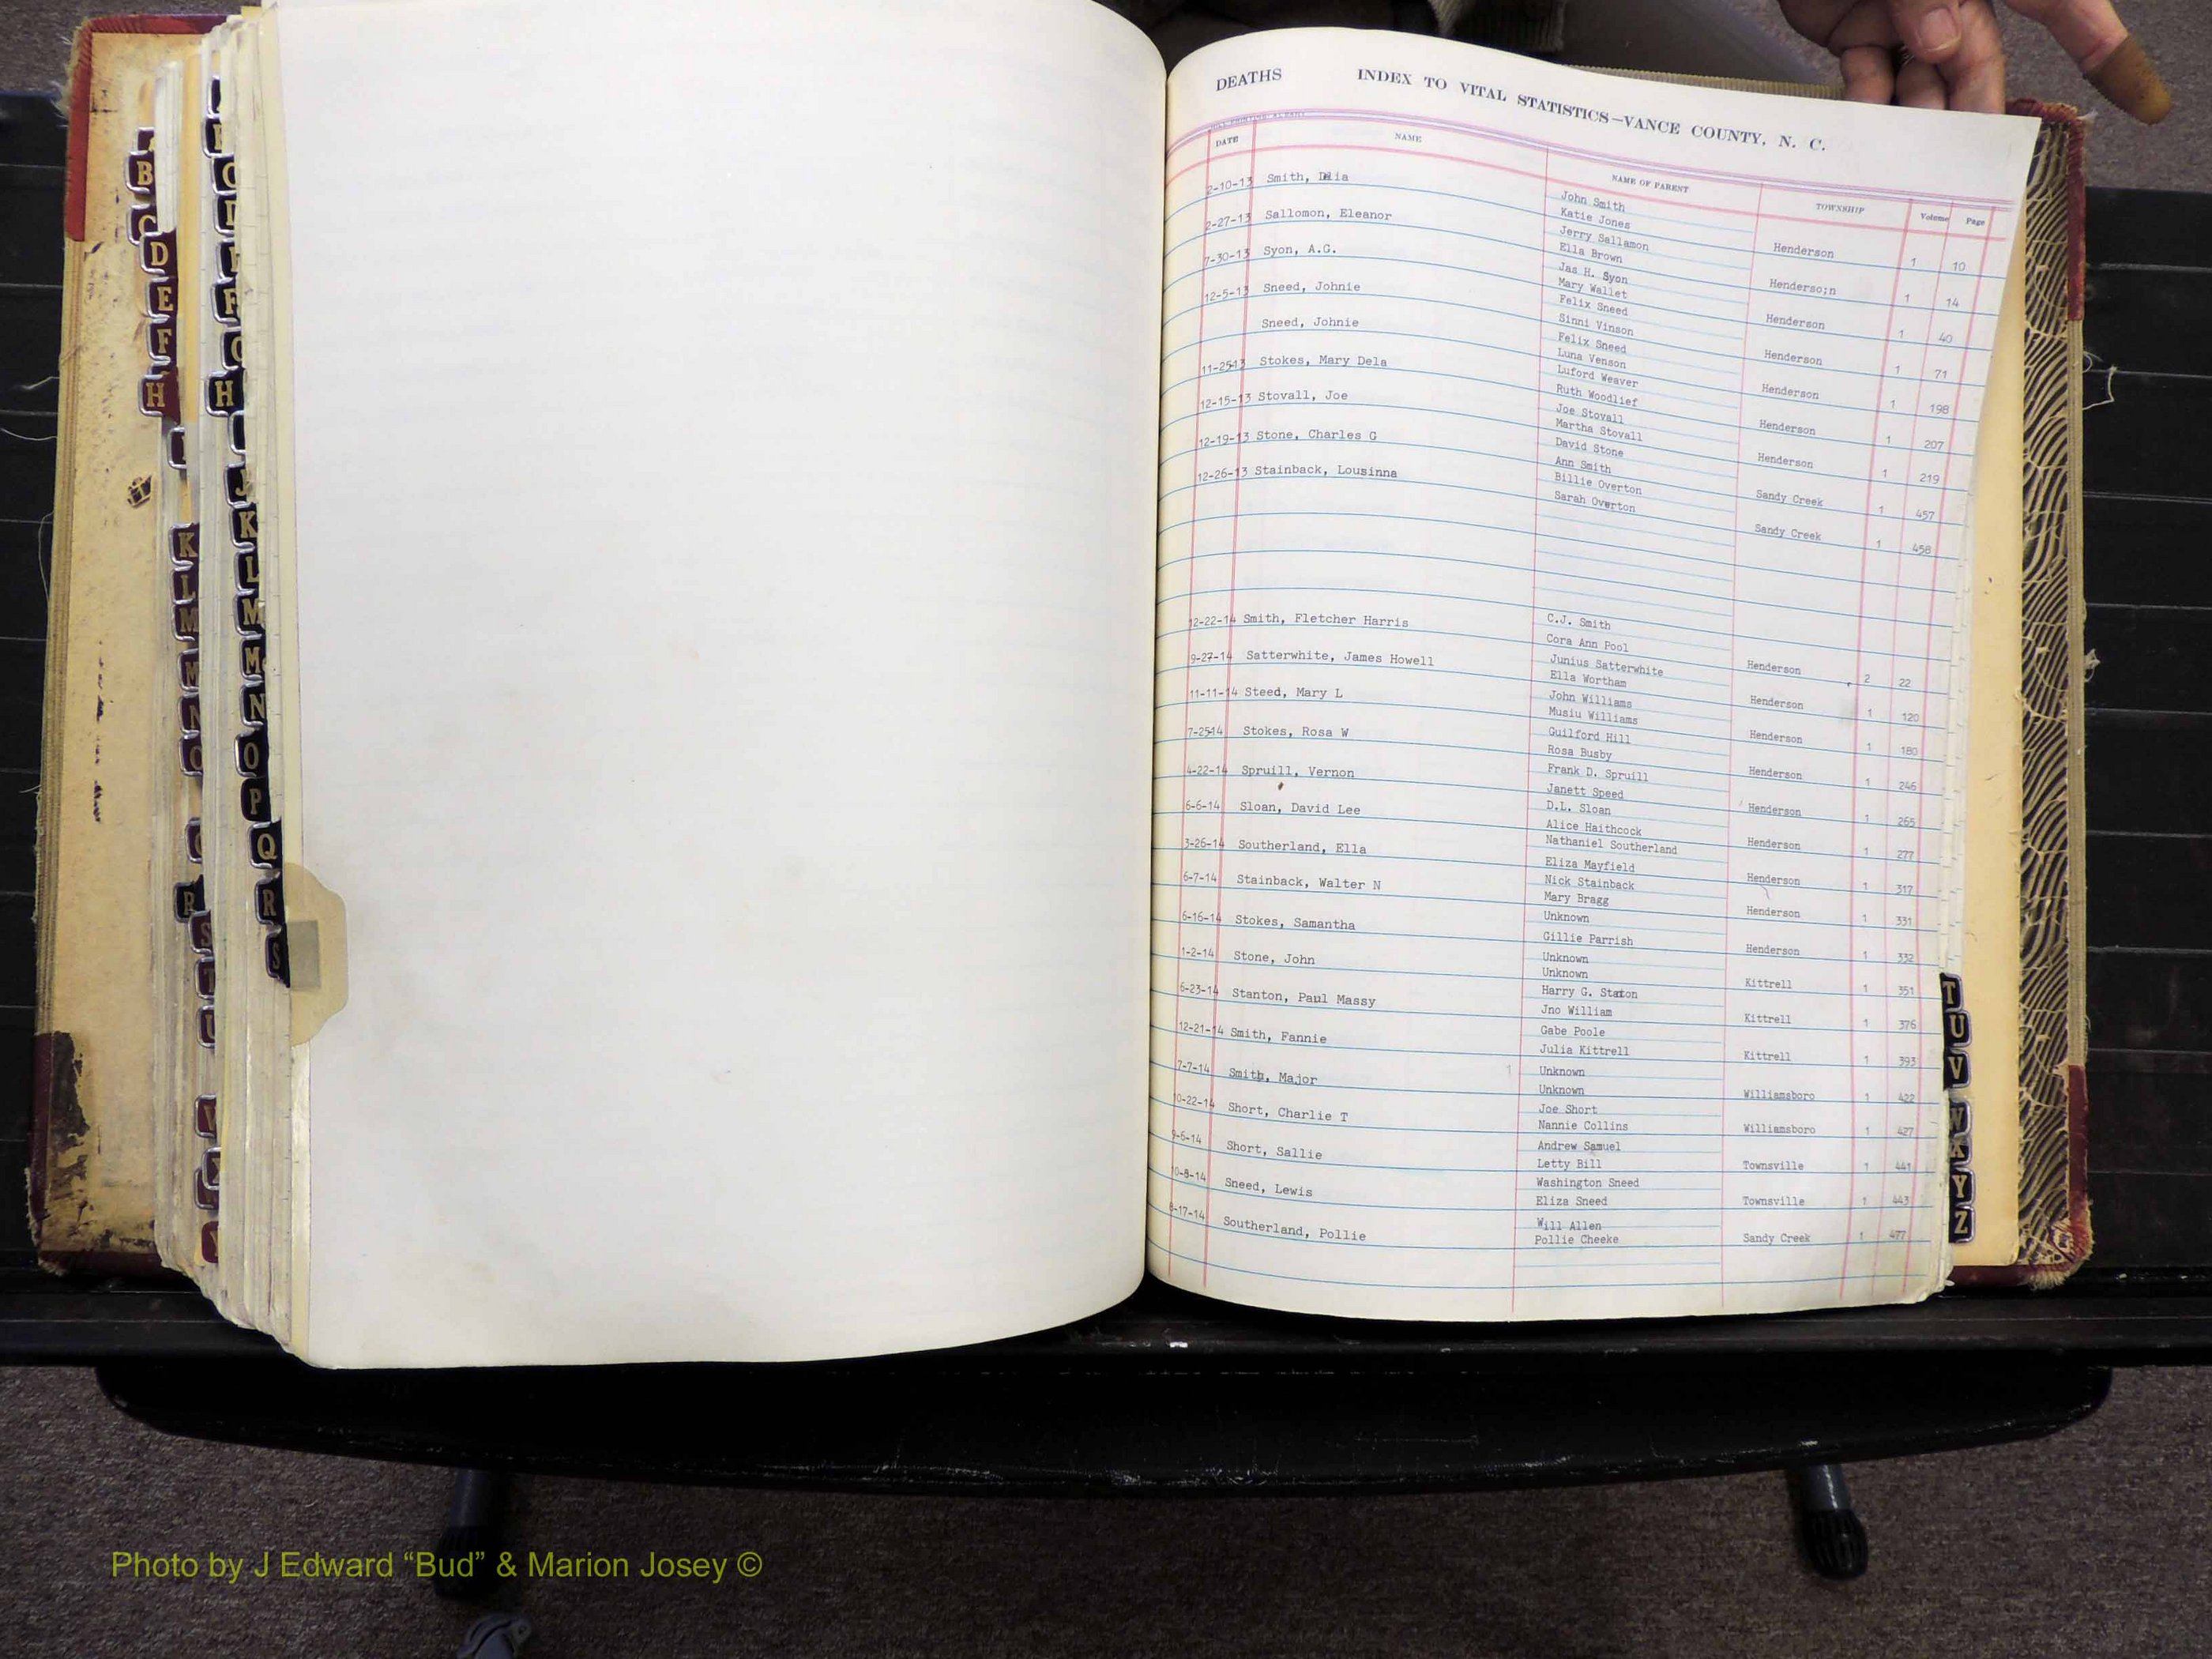 DEATHS INDEX TO VITAL STATISTICS—VANCE COUNTY, N. C.
DATE NAME NAME OF PARENT TOWNSHIP Volume Page
2-10-13 Smith, Delia John Smith
Katie Jones Henderson 1 10
2-27-13 Sallomon, Eleanor Jerry Sallamon
Ella Brown Henderso;n 1 14
7-30-13 Syon, A.G. Jas H. Syon
Mary Wallet Henderson 1 40
12-5-13 Sneed, Johnie Felix Sneed
Sinni Vinson Henderson 1 71
Sneed, Johnie Felix Sneed
Luna Venson Henderson 1 198
11-25-13 Stokes, Mary Dela Luford Weaver
Ruth Woodlief Henderson 1 207
12-15-13 Stovall, Joe Joe Stovall
Martha Stovall Henderson 1 219
12-19-13 Stone, Charles G David Stone
Ann Smith Sandy Creek 1 457
12-26-13 Stainback, Lousinna Billie Overton
Sarah Overton Sandy Creek 1 458
12-22-14 Smith, Fletcher Harris C.J. Smith
Cora Ann Pool Henderson 2 22
9-27-14 Satterwhite, James Howell Junius Satterwhite
Ella Wortham Henderson 1 120
11-11-14 Steed, Mary L John Williams
Musiu Williams Henderson 1 180
7-25-14 Stokes, Rosa W Guilford Hill
Rosa Busby Henderson 1 246
4-22-14 Spruill, Vernon Frank D. Spruill
Janett Speed Henderson 1 265
6-6-14 Sloan, David Lee D.L. Sloan
Alice Haithcock Henderson 1 277
3-26-14 Southerland, Ella Nathaniel Southerland
Eliza Mayfield Henderson 1 317
6-7-14 Stainback, Walter N Nick Stainback
Mary Bragg Henderson 1 331
6-16-14 Stokes, Samantha Unknown
Gillie Parrish Henderson 1 332
1-2-14 Stone, John Unknown
Unknown Kittrell 1 351
6-23-14 Stanton, Paul Massy Harry G. Staton
Jno William Kittrell 1 376
12-21-14 Smith, Fannie Gabe Poole
Julia Kittrell Kittrell 1 393
7-7-14 Smith, Major 1 Unknown
Unknown Williamsboro 1 422
10-22-14 Short, Charlie T Joe Short
Nannie Collins Williamsboro 1 427
9-6-14 Short, Sallie Andrew Samuel
Letty Bill Townsville 1 441
10-8-14 Sneed, Lewis Washington Sneed
Eliza Sneed Townsville 1 443
8-17-14 Southerland, Pollie Will Allen
Pollie Cheeke Sandy Creek 1 477
B
C
D
E
F
H
K
L
M
M
N
O
R
S
T
U
F
H
J
K
L
M
Mc
N
O
P
Q
R
S
T
U
V
W
Y
Z
Photo by J Edward “Bud” & Marion Josey ©